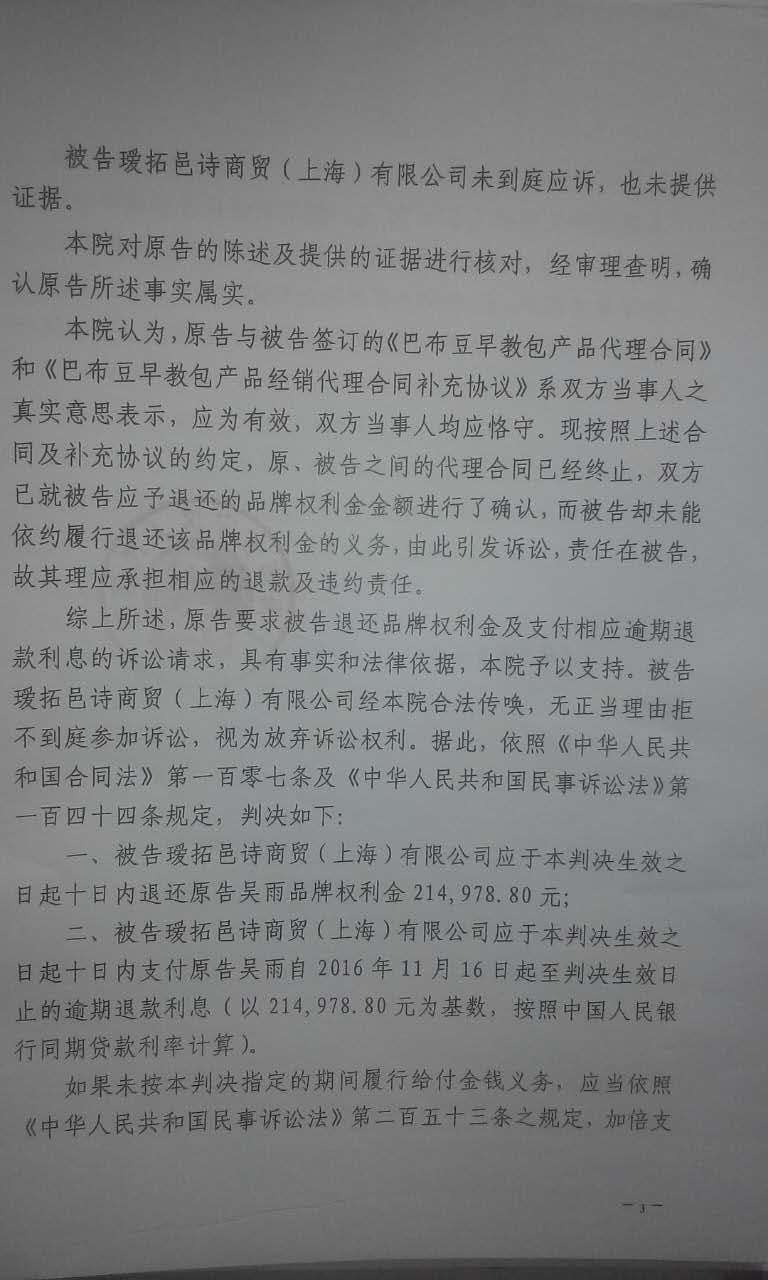 被告瑷拓邑诗商贸（上海）有限公司未到庭应诉，也未提供
证据。
本院对原告的陈述及提供的证据进行核对，经审理查明，确
认原告所述事实属实。
本院认为，原告与被告签订的《巴布豆早教包产品代理合同》
和《巴布豆早教包产品经销代理合同补充协议》系双方当事人之
真实意思表示，应为有效，双方当事人均应恪守。现按照上述合
同及补充协议的约定，原、被告之间的代理合同已经终止，双方
已就被告应予退还的品牌权利金金额进行了确认，而被告却未能
依约履行退还该品牌权利金的义务，由此引发诉讼，责任在被告，
故其理应承担相应的退款及违约责任。
综上所述，原告要求被告退还品牌权利金及支付相应逾期退
款利息的诉讼请求，具有事实和法律依据，本院予以支持。被告
瑷拓邑诗商贸（上海）有限公司经本院合法传唤，无正当理由拒
不到庭参加诉讼，视为放弃诉讼权利。据此，依照《中华人民共
和国合同法》第一百零七条及《中华人民共和国民事诉讼法》第
一百四十四条规定，判决如下：
一、被告瑷拓邑诗商贸（上海）有限公司应于本判决生效之
日起十日内退还原告吴雨品牌权利金 214,978.80 元；
二、被告瑷拓邑诗商贸（上海）有限公司应于本判决生效之
日起十日内支付原告吴雨自 2016 年 11 月 16 日起至判决生效日
止的逾期退款利息（以 214,978.80 元为基数，按照中国人民银
行同期贷款利率计算）。
如果未按本判决指定的期间履行给付金钱义务，应当依照
《中华人民共和国民事诉讼法》第二百五十三条之规定，加倍支
－3－